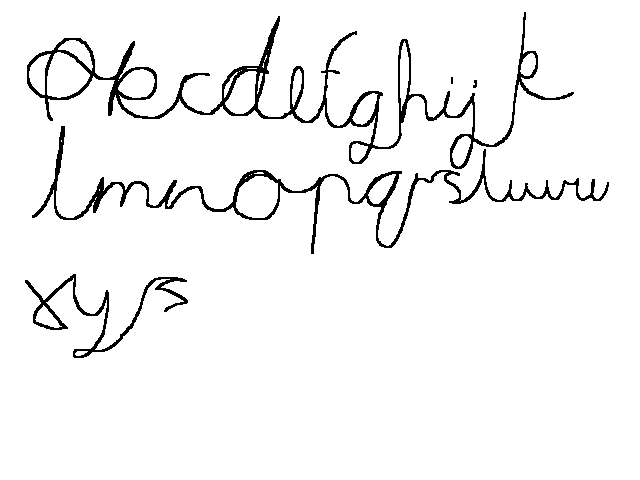 abcdefghijk
lmnopqrstuvw
xyz